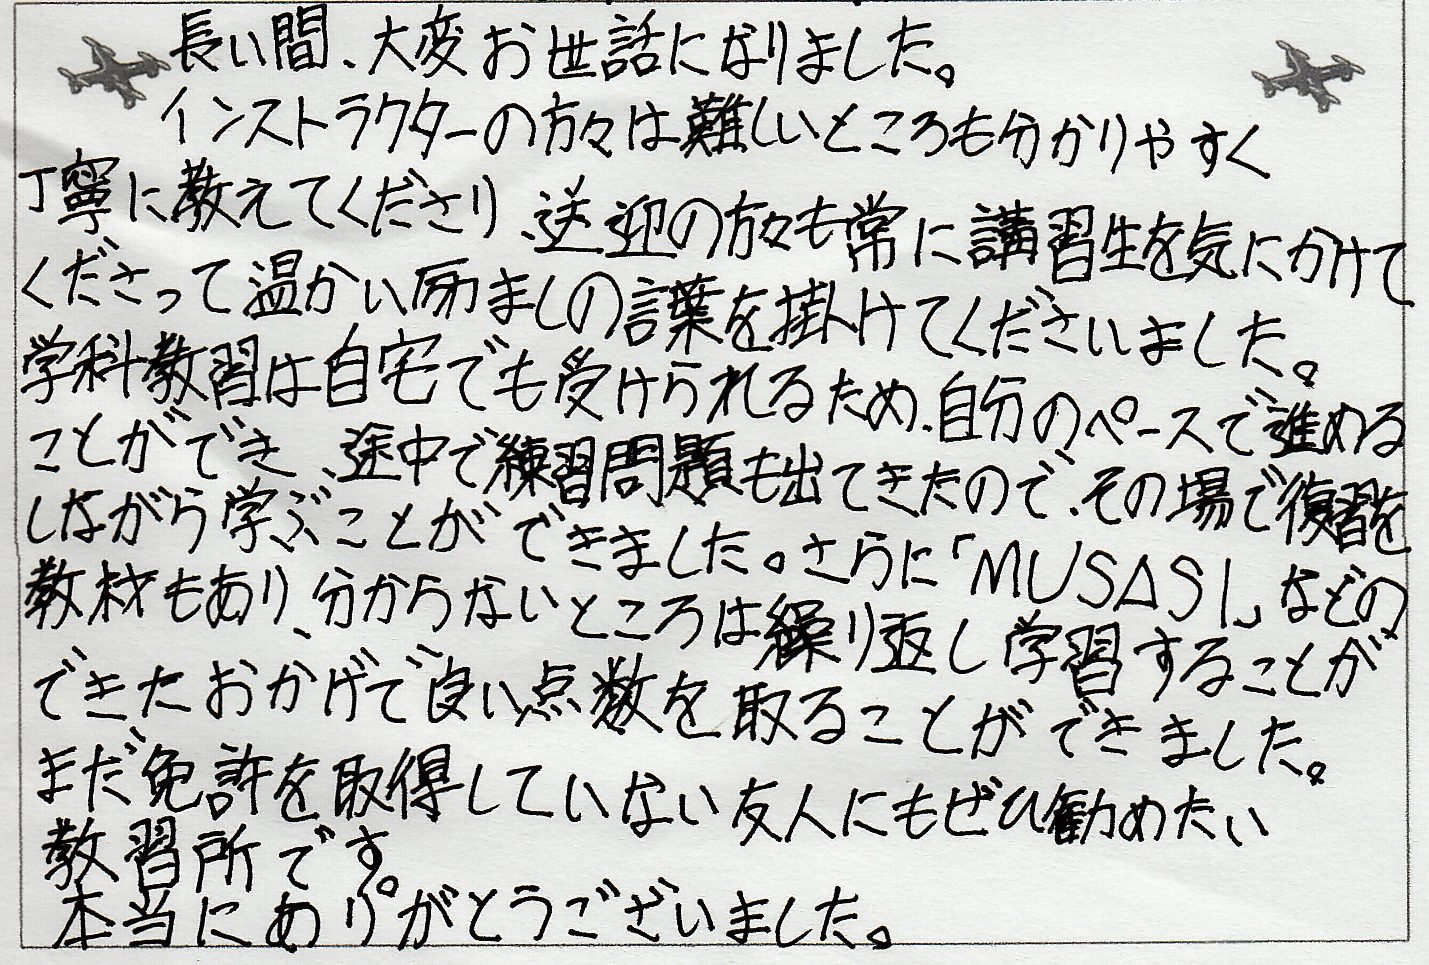 長い間、大変お世話になりました。
インストラクターの方々は難しいところも分かりやすく
丁寧に教えてくださり、送迎の方々も常に講習生を気にかけて
くださって温かい励ましの言葉を掛けてくださいました。
学科教習は自宅でも受けられるため、自分のペースで進める
ことができ、途中で練習問題も出てきたので、その場で復習を
しながら学ぶことができました。さらに「MUSASI」などの
教材もあり、分からないところは繰り返し学習することが
できたおかげで良い点数を取ることができました。
まだ免許を取得していない友人にもぜひ勧めたい
教習所です。
本当にありがとうございました。